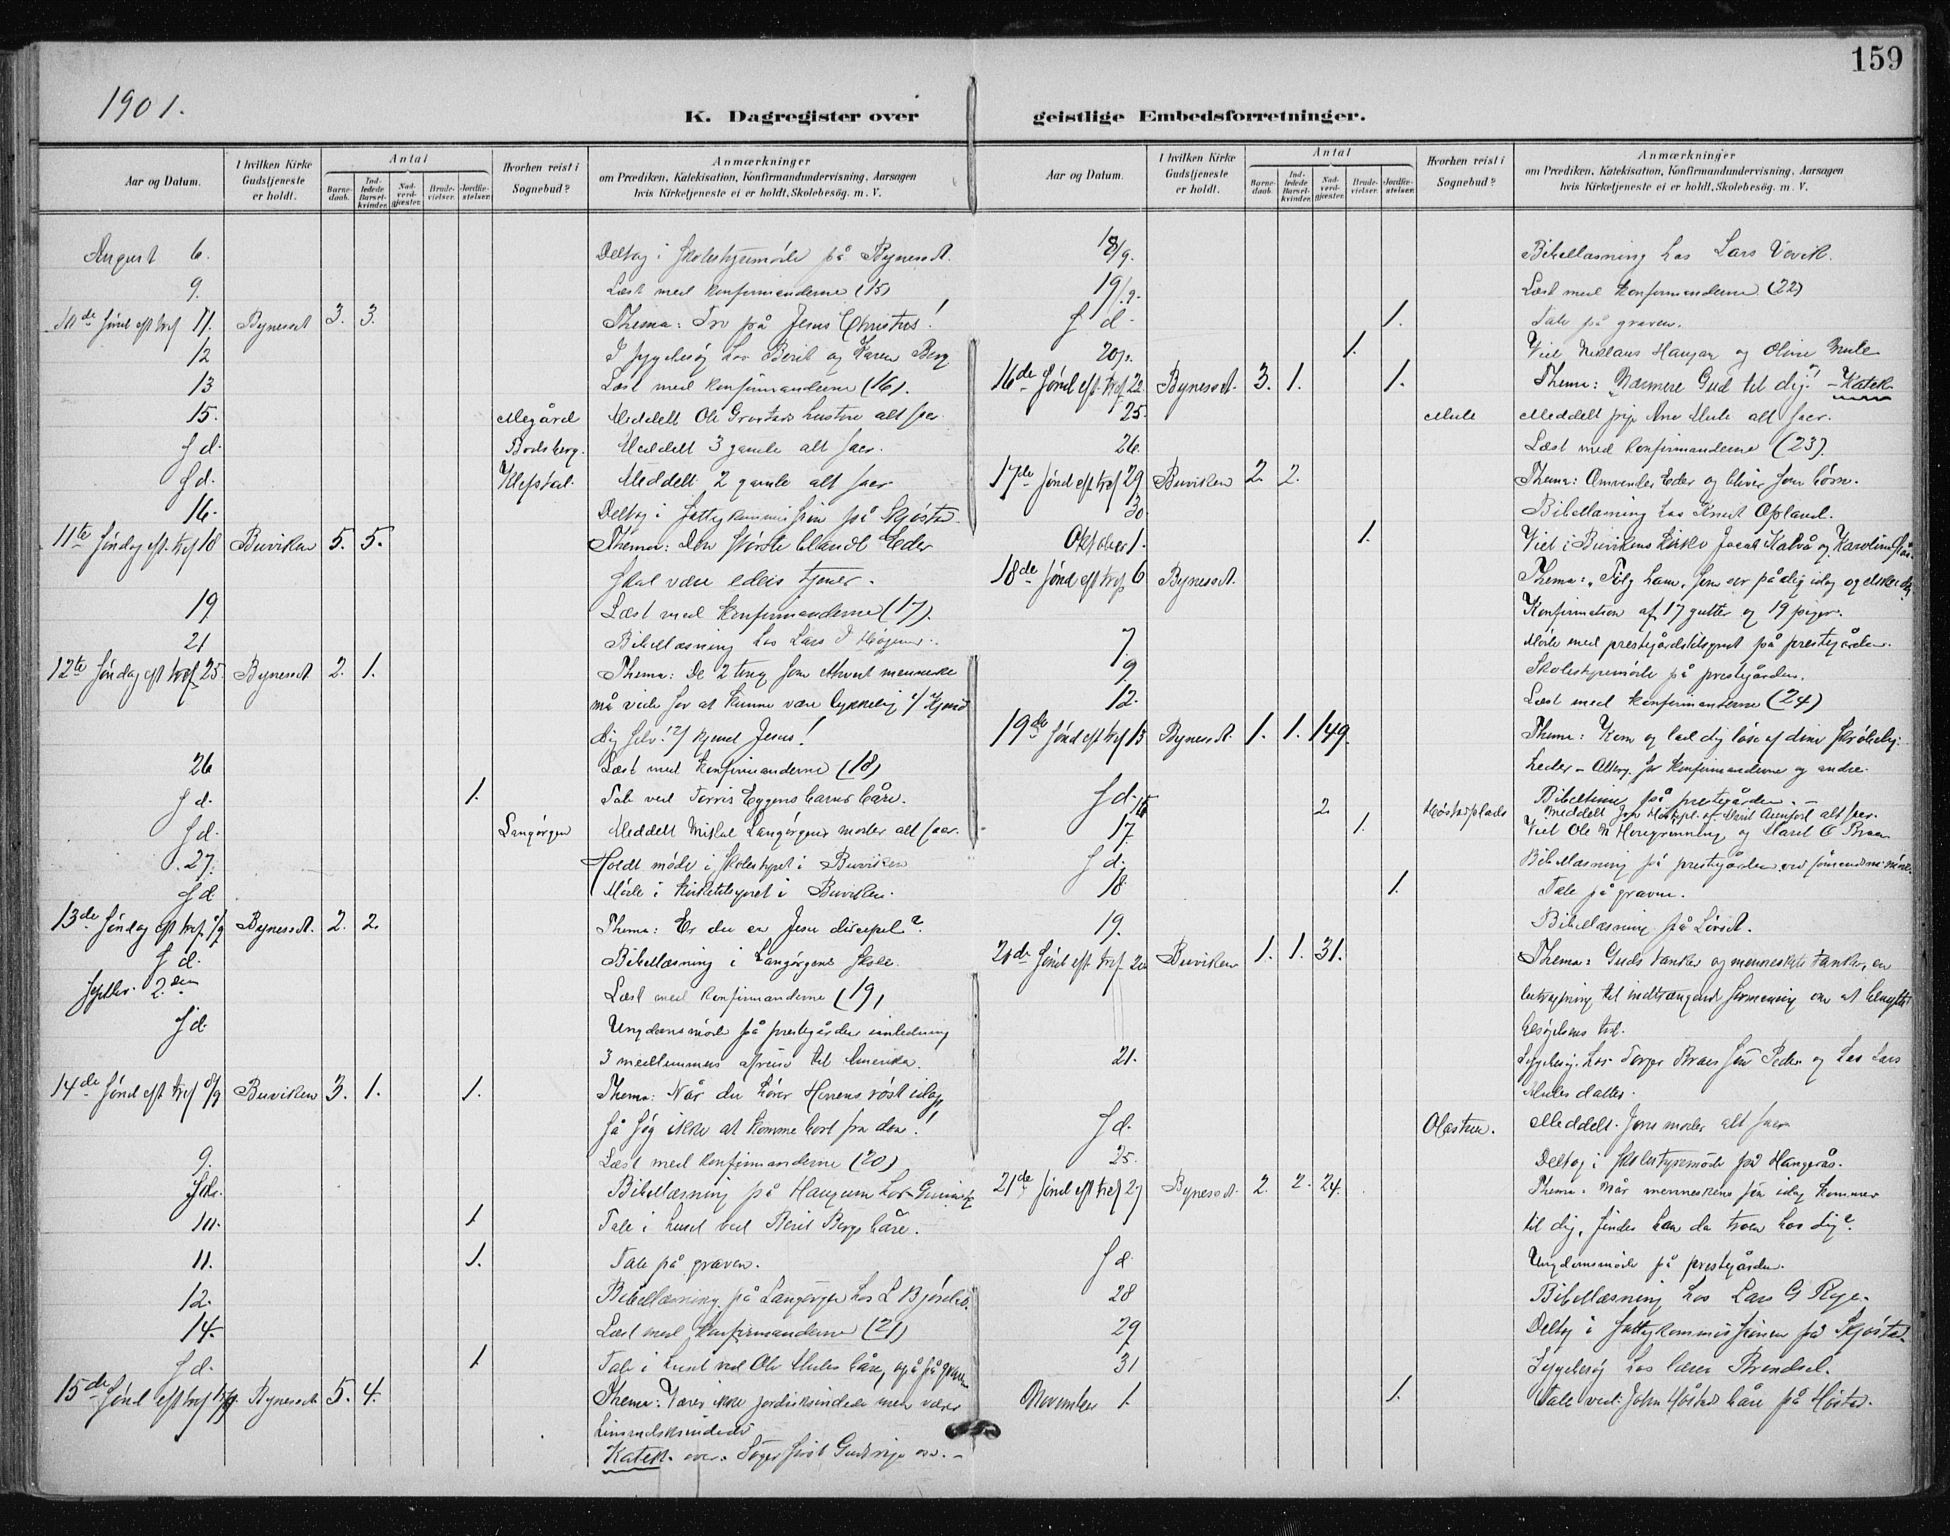 159
1901.
K. Dagregister over geistlige Embedsforretninger.
Aar og Datum.
I hvilken Kirke Gudstjeneste er holdt.
Antal
Barnedaab.
Indledede Barselkvinder.
Nadverdgjæster.
Brudevielser.
Jordfæstelser.
Hvorhen reist i Sognebud?
Anmærkninger
om Prædiken, Katekisation, Konfirmandundervisning, Aarsagen
hvis Kirketjeneste ei er holdt, Skolebesøg. m. V.
August 6. Deltog i skolestyremøde på Bynesset.
9. Læst med konfirmanderne (15)
10de Sønd eft tref 11. Bynesset 3. 3. Thema: Tro på Jesus Christus!
12 I sygebesøg hos Berit og Karen Berg
13 Læst med konfirmanderne (16).
15. Megård Meddelt Ole hustru alt saer.
S d. Meddelt 3 gamle alt saer.
S d. Klefstad. Meddelt 2 gamle alt saer
16. Deltog i fattigkommission på Skjøstad.
11te Søndag eft. tref 18 Buviken 5. 5. Thema: Den største blandt Eder
skal være eders tjener.
19 Læst med konfirmanderne (17).
21 Bibellæsning hos Lars
12te Søndag eft tref 25. Bynesset 2. 1. Thema: De 2 ting som ethvert menneske
må vide for at kunne være lykkelig 1/ Kjend
dig selv! 2/ kjend Jesus!
26 Læst med konfirmanderne (18)
S d. 1. Tale ved Torris Eggens barns båre.
S d. Langørgen Meddelt Mikal Langørgens moder alt saer.
27. Holdt møde i skolestyret i Buviken
S d Møde i kirketilsynet i Buviken.
13de Søndag eft tref. 1/9 Bynesset. 2. 2. Thema: Er du en Jesu discipel?
S d. Bibellæsning i Langørgens skole.
Septbr. 2den Læst med konfirmanderne (19)
S d. Ungdomsmøde på prestegården
3 medlemmers afreise til Amerika.
14de Sønd eft tref 8/9 Buviken 3. 1. 1. Thema: Når du hører Herrens røst idag,
så søg ikke at komme bort fra den!
9. Læst med konfirmanderne (20)
S d. Bibellæsning på Haugum hos
10. 1 Tale i huset ved Berit Bergs båre.
11. 1. Tale på graven.
12. Bibellæsning på Langørgen hos L
14. Læst med konfirmanderne (21)
S d. 1 Tale i huset ved Ole Mules båre, også på graven
15de Sønd eft tref 15/9 Bynesset 5. 4. Thema: Værer ikke jordisksindede men værer
himmelsksindede
Katek. over: Søger først Guds rige osv. –
18/9. Bibellæsning hos Lars Vevik.
19/9. Læst med konfirmanderne (22)
S d. 1. Tale på graven.
20/9. 1. Viet Haugan og Oline Mule
16de Sønd eft. tref 22 Bynesset. 3. 1. 1. Thema: "Nærmere Gud til dig"! – Katek
25. Mule Meddelt pige Ane Mule alt saer.
26. Læst med konfirmanderne (23).
17de Sønd eft tref 29 Buviken 2. 2. Thema: Omvender Eder og bliver som børn.
30. Bibellæsning hos Knut Opland.
Oktober 1. 1. Viet i Buvikens kirke Jacob Kalvå og Karoline
18de Sønd eft tref 6 Bynesset. Thema: "Følg ham, som ser på dig idag og elsker dig
Konfirmation af 17 gutter og 19 piger.
7 Møde med prestegårdstilsynet på prestegården.
9 Skolestyremøde på prestegården.
12. Læst med konfirmanterne (24)
19de Sønd eft tref 13 Bynesset. 1. 1. 149. Thema: Kom og lad dig løse af dine skrøbelig-
heder – Altergang for konfirmanderne og andre.
S d. Bibeltime på prestegården. –
16 2 Høstadplads Meddelt alt saer.
17. 1. Viet Ole N Horgrenning og Marit
S d. Bibellæsning på prestegården ved
18 1. Tale på graven.
19. Bibellæsning på
20de Sønd eft. tref. 20 Buviken 1. 1. 31. Thema: Guds tanker og menneskets tanker, en
betragtning til indtrængende formaning om at benytte
besøgelsens tid.
21. Sygebesøg hos Torger Braas søn Peder og hos Lars
Mules datter.
S d. Olastuen. Meddelt Jons moder alt saer
25. Deltog i skolestyremøde på Hangerås.
21de Sønd eft tref 27 Bynesset. 2. 2. 24. Thema: Når menneskens søn idag kommer
til dig, finder han da troen hos dig?
S d. Ungdomsmøde på prestegården.
28 Bibellæsning hos Lars G Rye.
29 Deltog i fattigkommissionen på Skjøstad.
31 Sygebesøg hos lærer Brendsel.
November 1. 1. Tale ved John Høstads båre på Høstad.